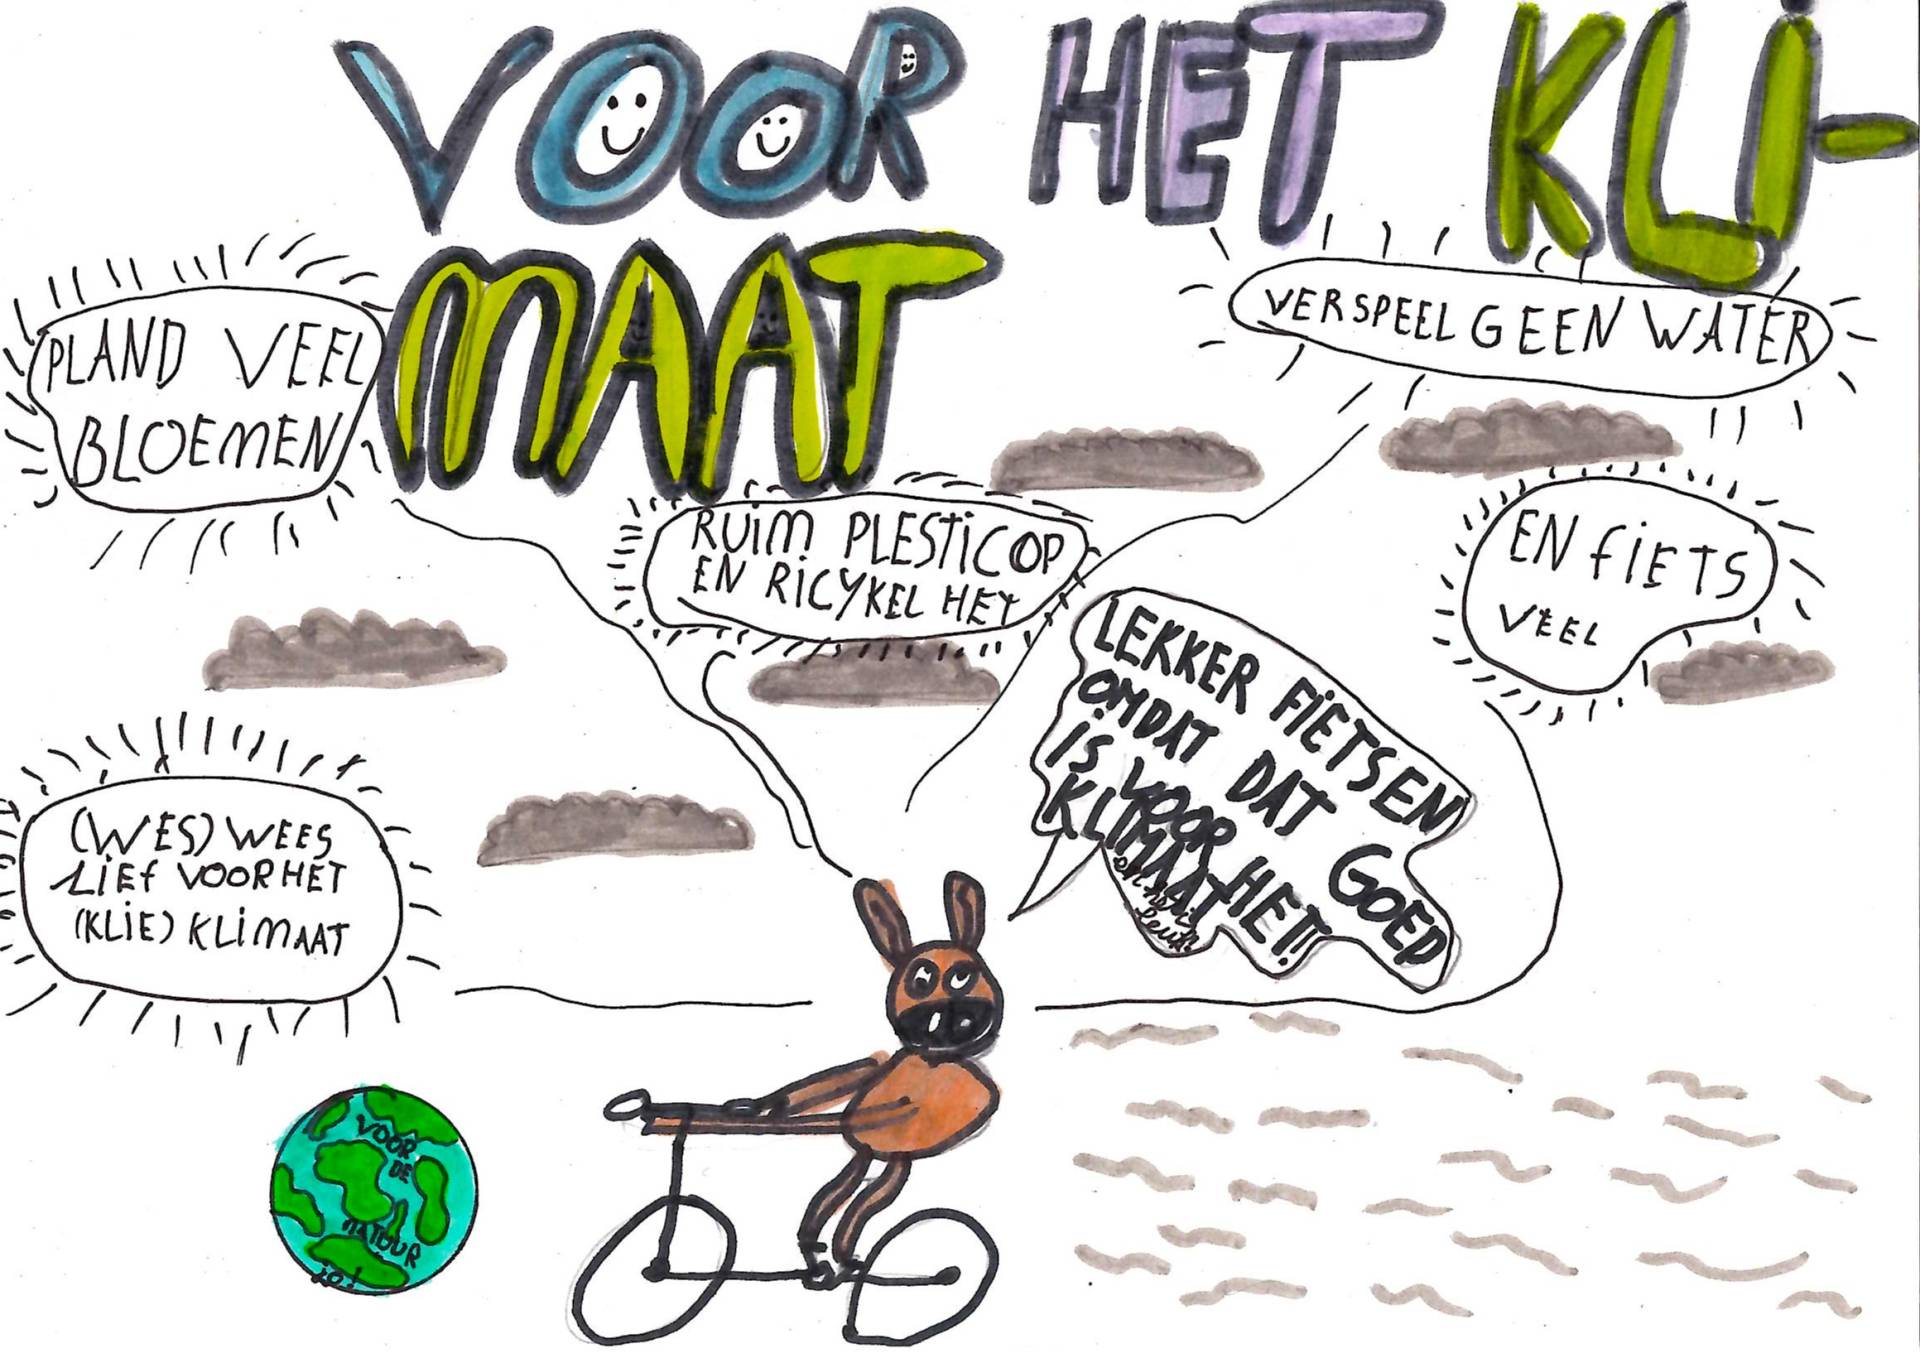 VOOR HET KLI-
MAAT
PLAND VEEL
BLOEMEN
VERSPEEL GEEN WATER
RUIM PLESTIC OP
EN RICYKEL HET
EN FIETS
VEEL
LEKKER FIETSEN
OMDAT DAT GOED
IS VOOR HET!!
KLIMAAT
leuk
(WES) WEES
LIEF VOOR HET
(KLIE) KLIMAAT
VOOR
DE
NATUUR